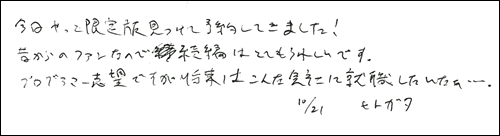 今日やっと限定版見つけて予約してきました!
昔からのファンなので続編はとてもうれしいです。
プログラマー志望ですが将来はこんな会社に就職したいなぁ…。
10/21 モトガタ